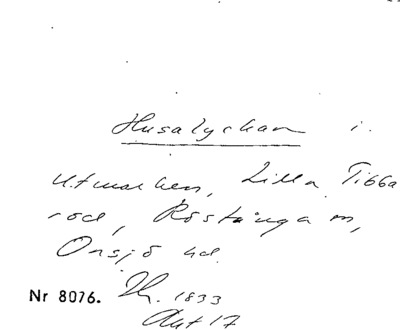 Husalyckan i.
Utmarken, Lilla Tibba
röd, Röstånga sn,
Onsjö hd.
Nr 8076. Lh. 1833
Akt 17